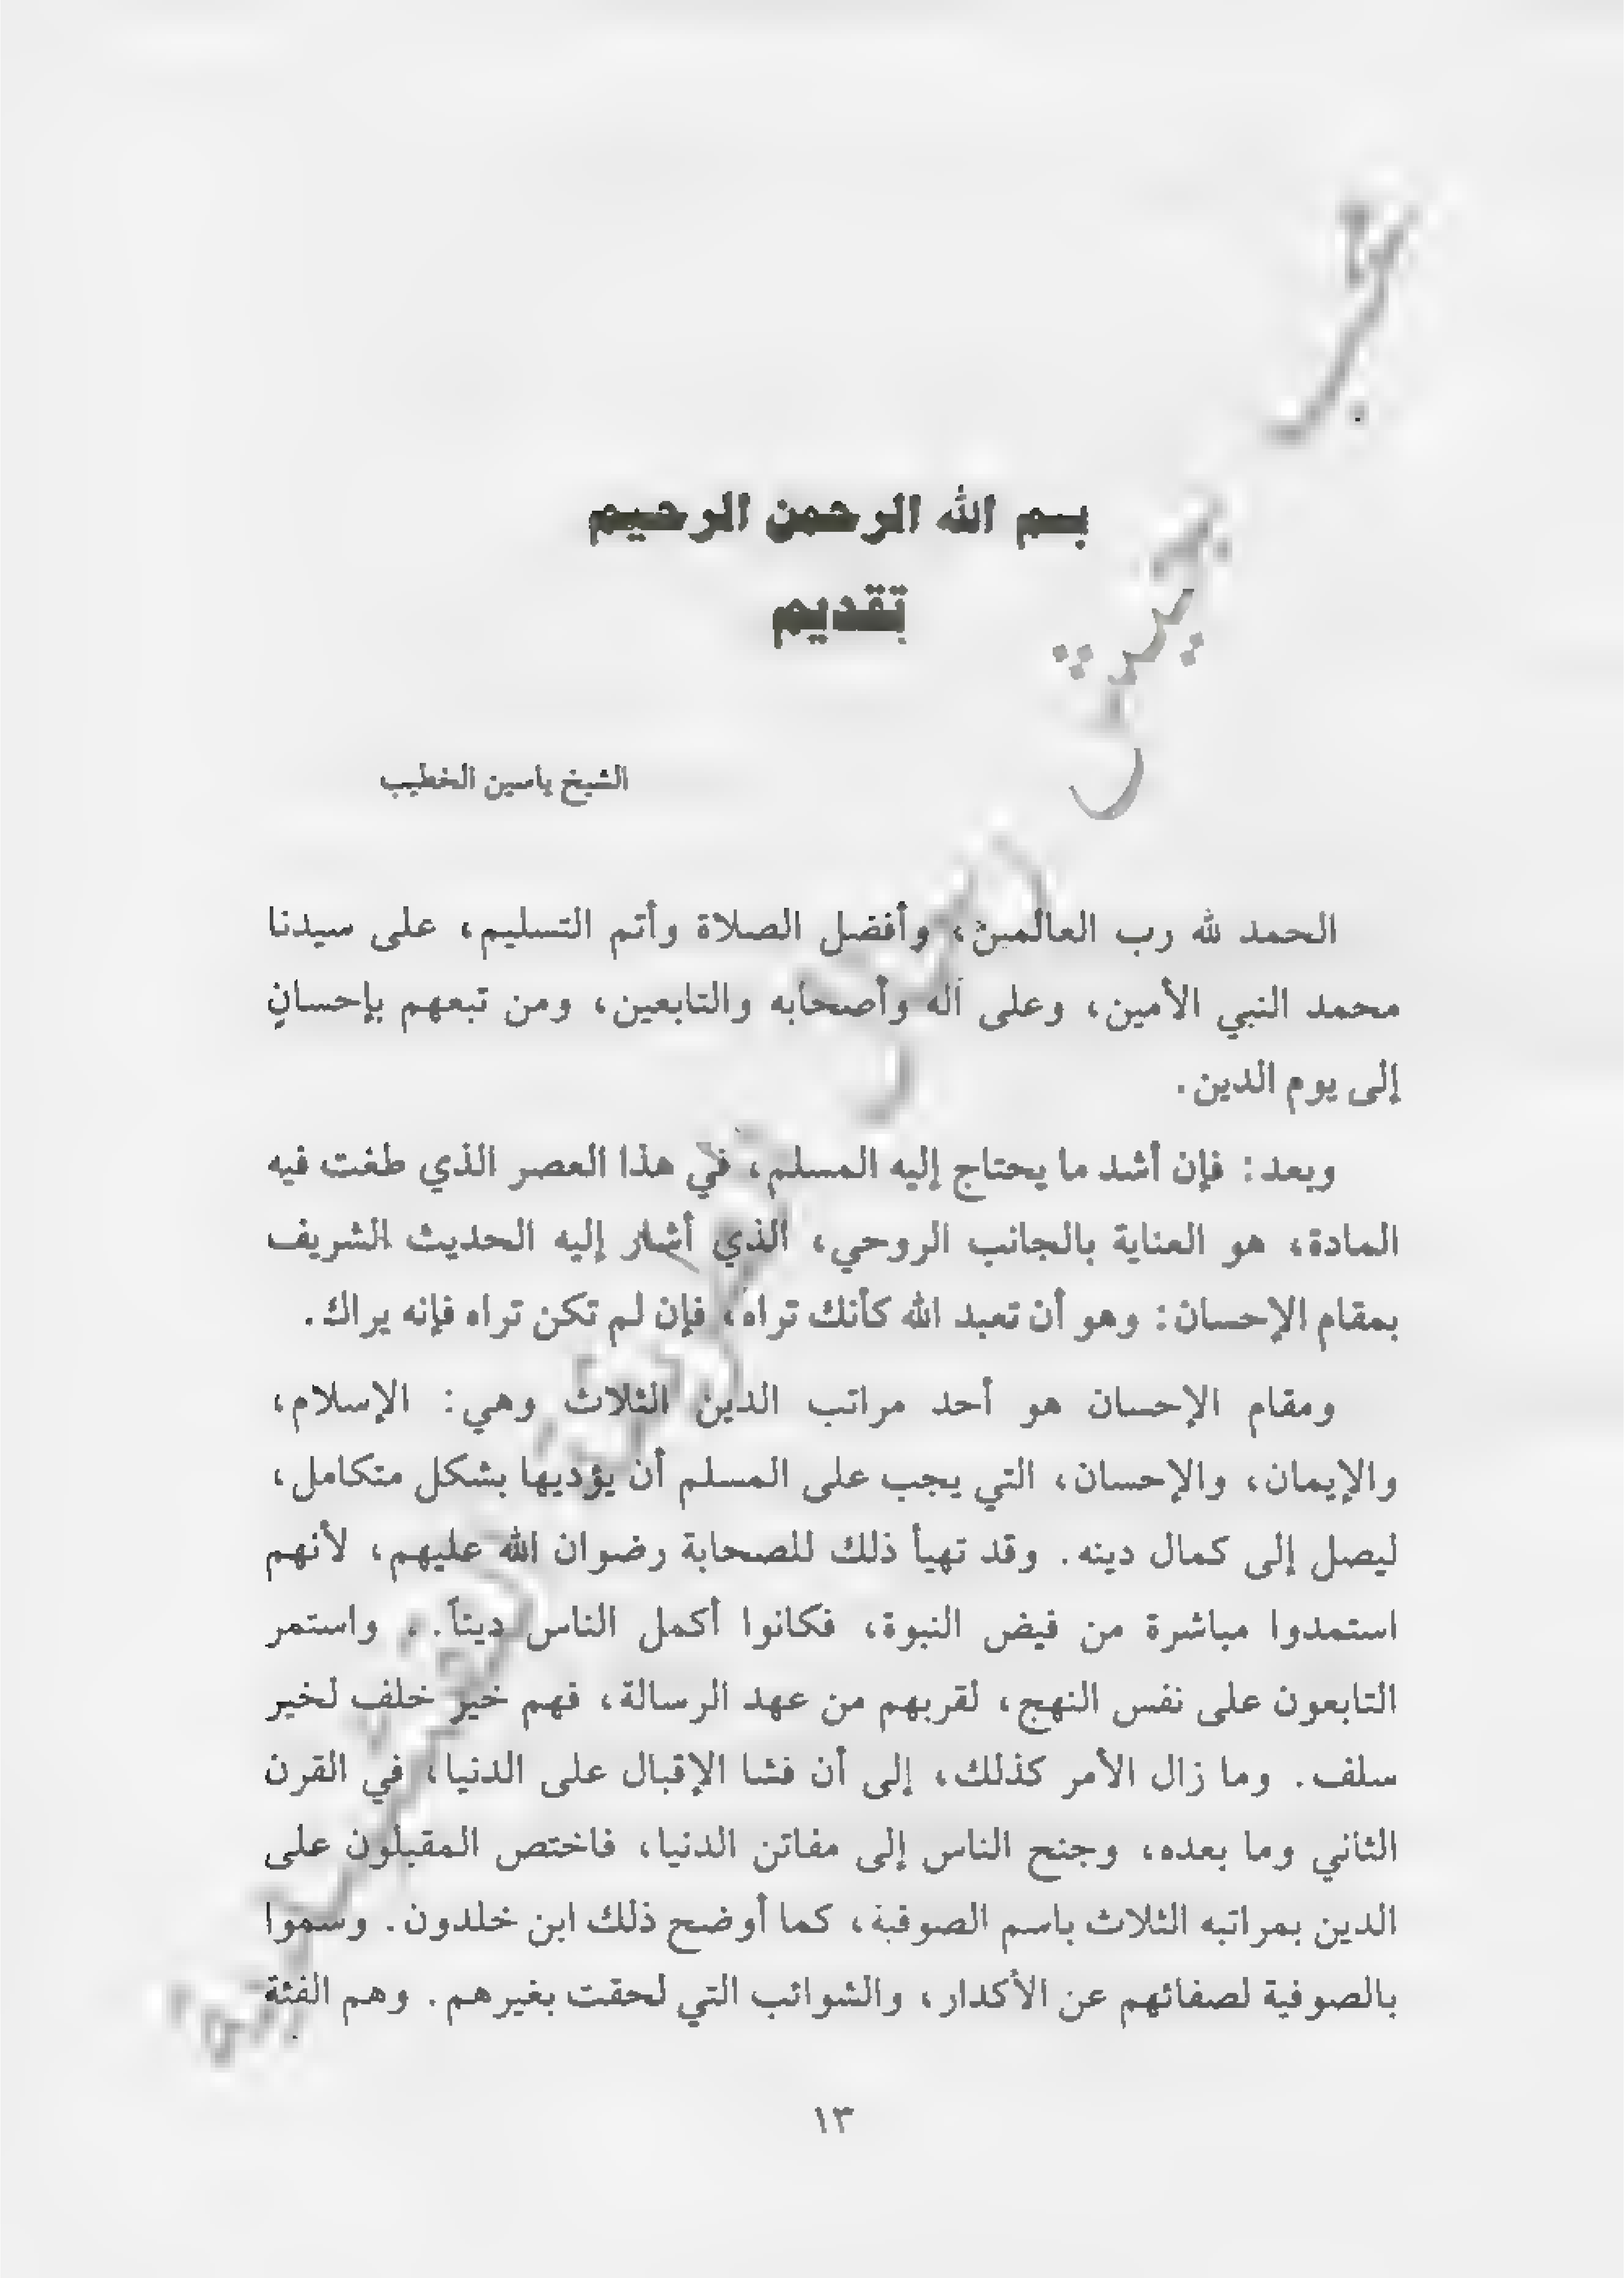 بسم الله الرحمن الرحيم
تقديم
الشيخ ياسين الخطيب
الحمد لله رب العالمين، وأفضل الصلاة وأتم التسليم، على سيدنا
محمد النبي الأمين، وعلى آله وأصحابه والتابعين، ومن تبعهم بإحسانٍ
إلى يوم الدين.
وبعد: فإن أشد ما يحتاج إليه المسلم، في هذا العصر الذي طغت فيه
المادة، هو العناية بالجانب الروحي، الذي أشار إليه الحديث الشريف
بمقام الإحسان: وهو أن تعبد الله كأنك تراه، فإن لم تكن تراه فإنه يراك.
ومقام الإحسان هو أحد مراتب الدين الثلاث وهي: الإسلام،
والإيمان، والإحسان، التي يجب على المسلم أن يؤديها بشكل متكامل،
ليصل إلى كمال دينه. وقد تهيأ ذلك للصحابة رضوان الله عليهم، لأنهم
استمدوا مباشرة من فيض النبوة، فكانوا أكمل الناس ديناً.. واستمر
التابعون على نفس النهج، لقربهم من عهد الرسالة، فهم خير خلف لخير
سلف. وما زال الأمر كذلك، إلى أن فشا الإقبال على الدنيا، في القرن
الثاني وما بعده، وجنح الناس إلى مفاتن الدنيا، فاختص المقبلون على
الدين بمراتبه الثلاث باسم الصوفية، كما أوضح ذلك ابن خلدون. وسموا
بالصوفية لصفائهم عن الأكدار، والشوائب التي لحقت بغيرهم. وهم الفئة
١٣